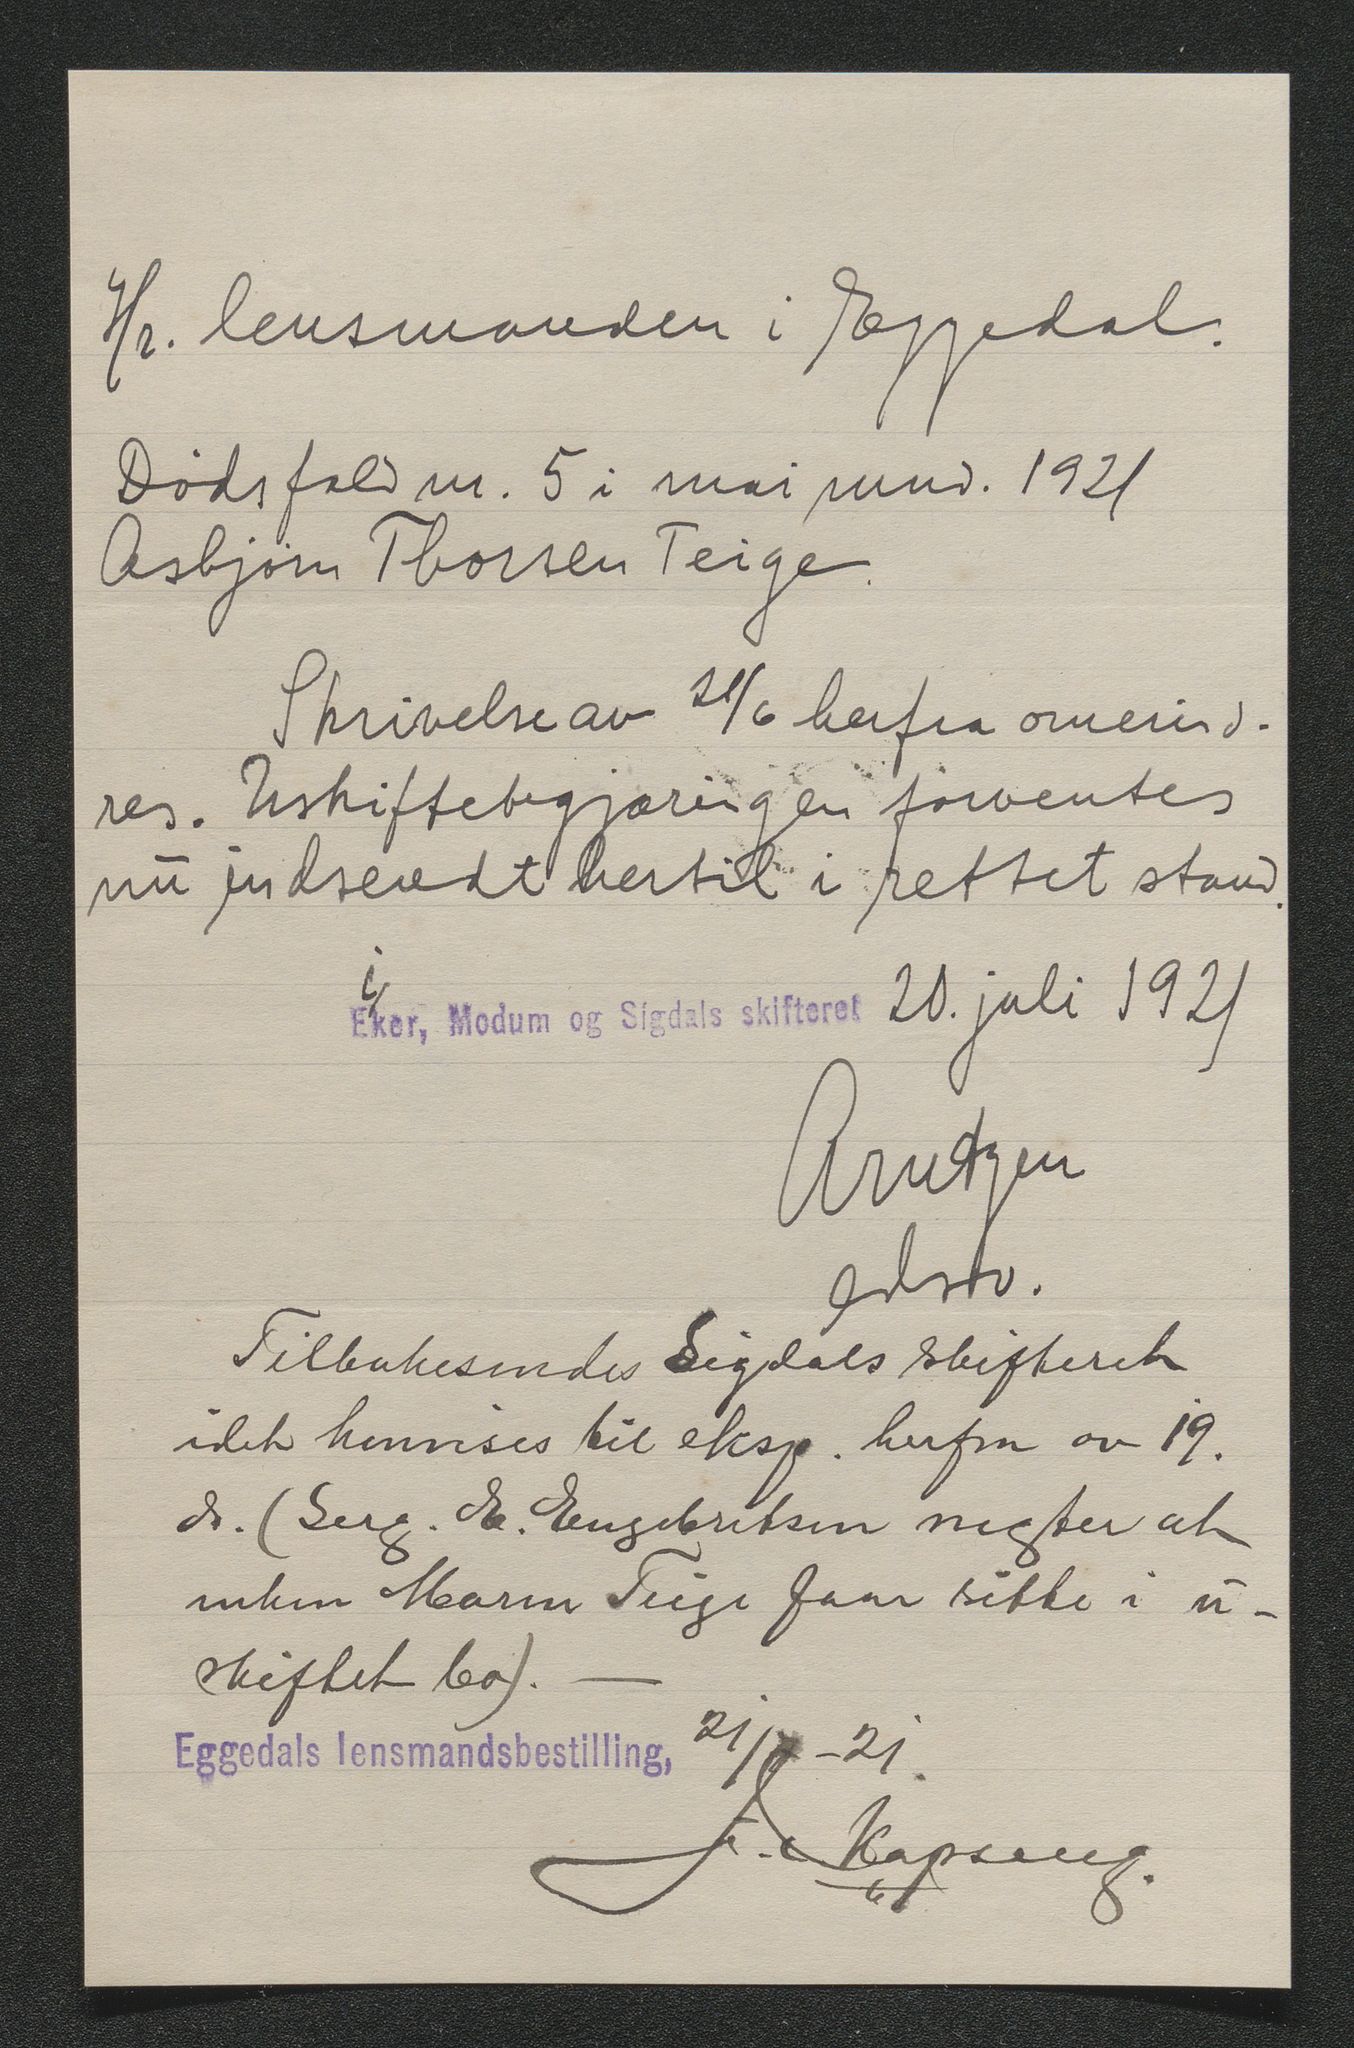 Hr. lensmanden i Eggedal.
Dødsfald nr. 5 i mai mnd. 1921
Asbjørn Thorsen Teige.
Skrivelse av 21/6 herfra omerind-
res. Uskiftebegjæringen forventes
nu indsendt hertil i rettet stand.
Eker, Modum og Sigdals skifteret 20. juli 1921
Arntzen
edsv.
Tilbakesendes Sigdals skifteret
idet henvises til eksp. herfra av 19.
ds. (Serg. E. Engebretsen negter at
enken Maren Teige faar sitte i u-
skiftet bo). —
Eggedals lensmandsbestilling, 21/7-21.
Kopseng.